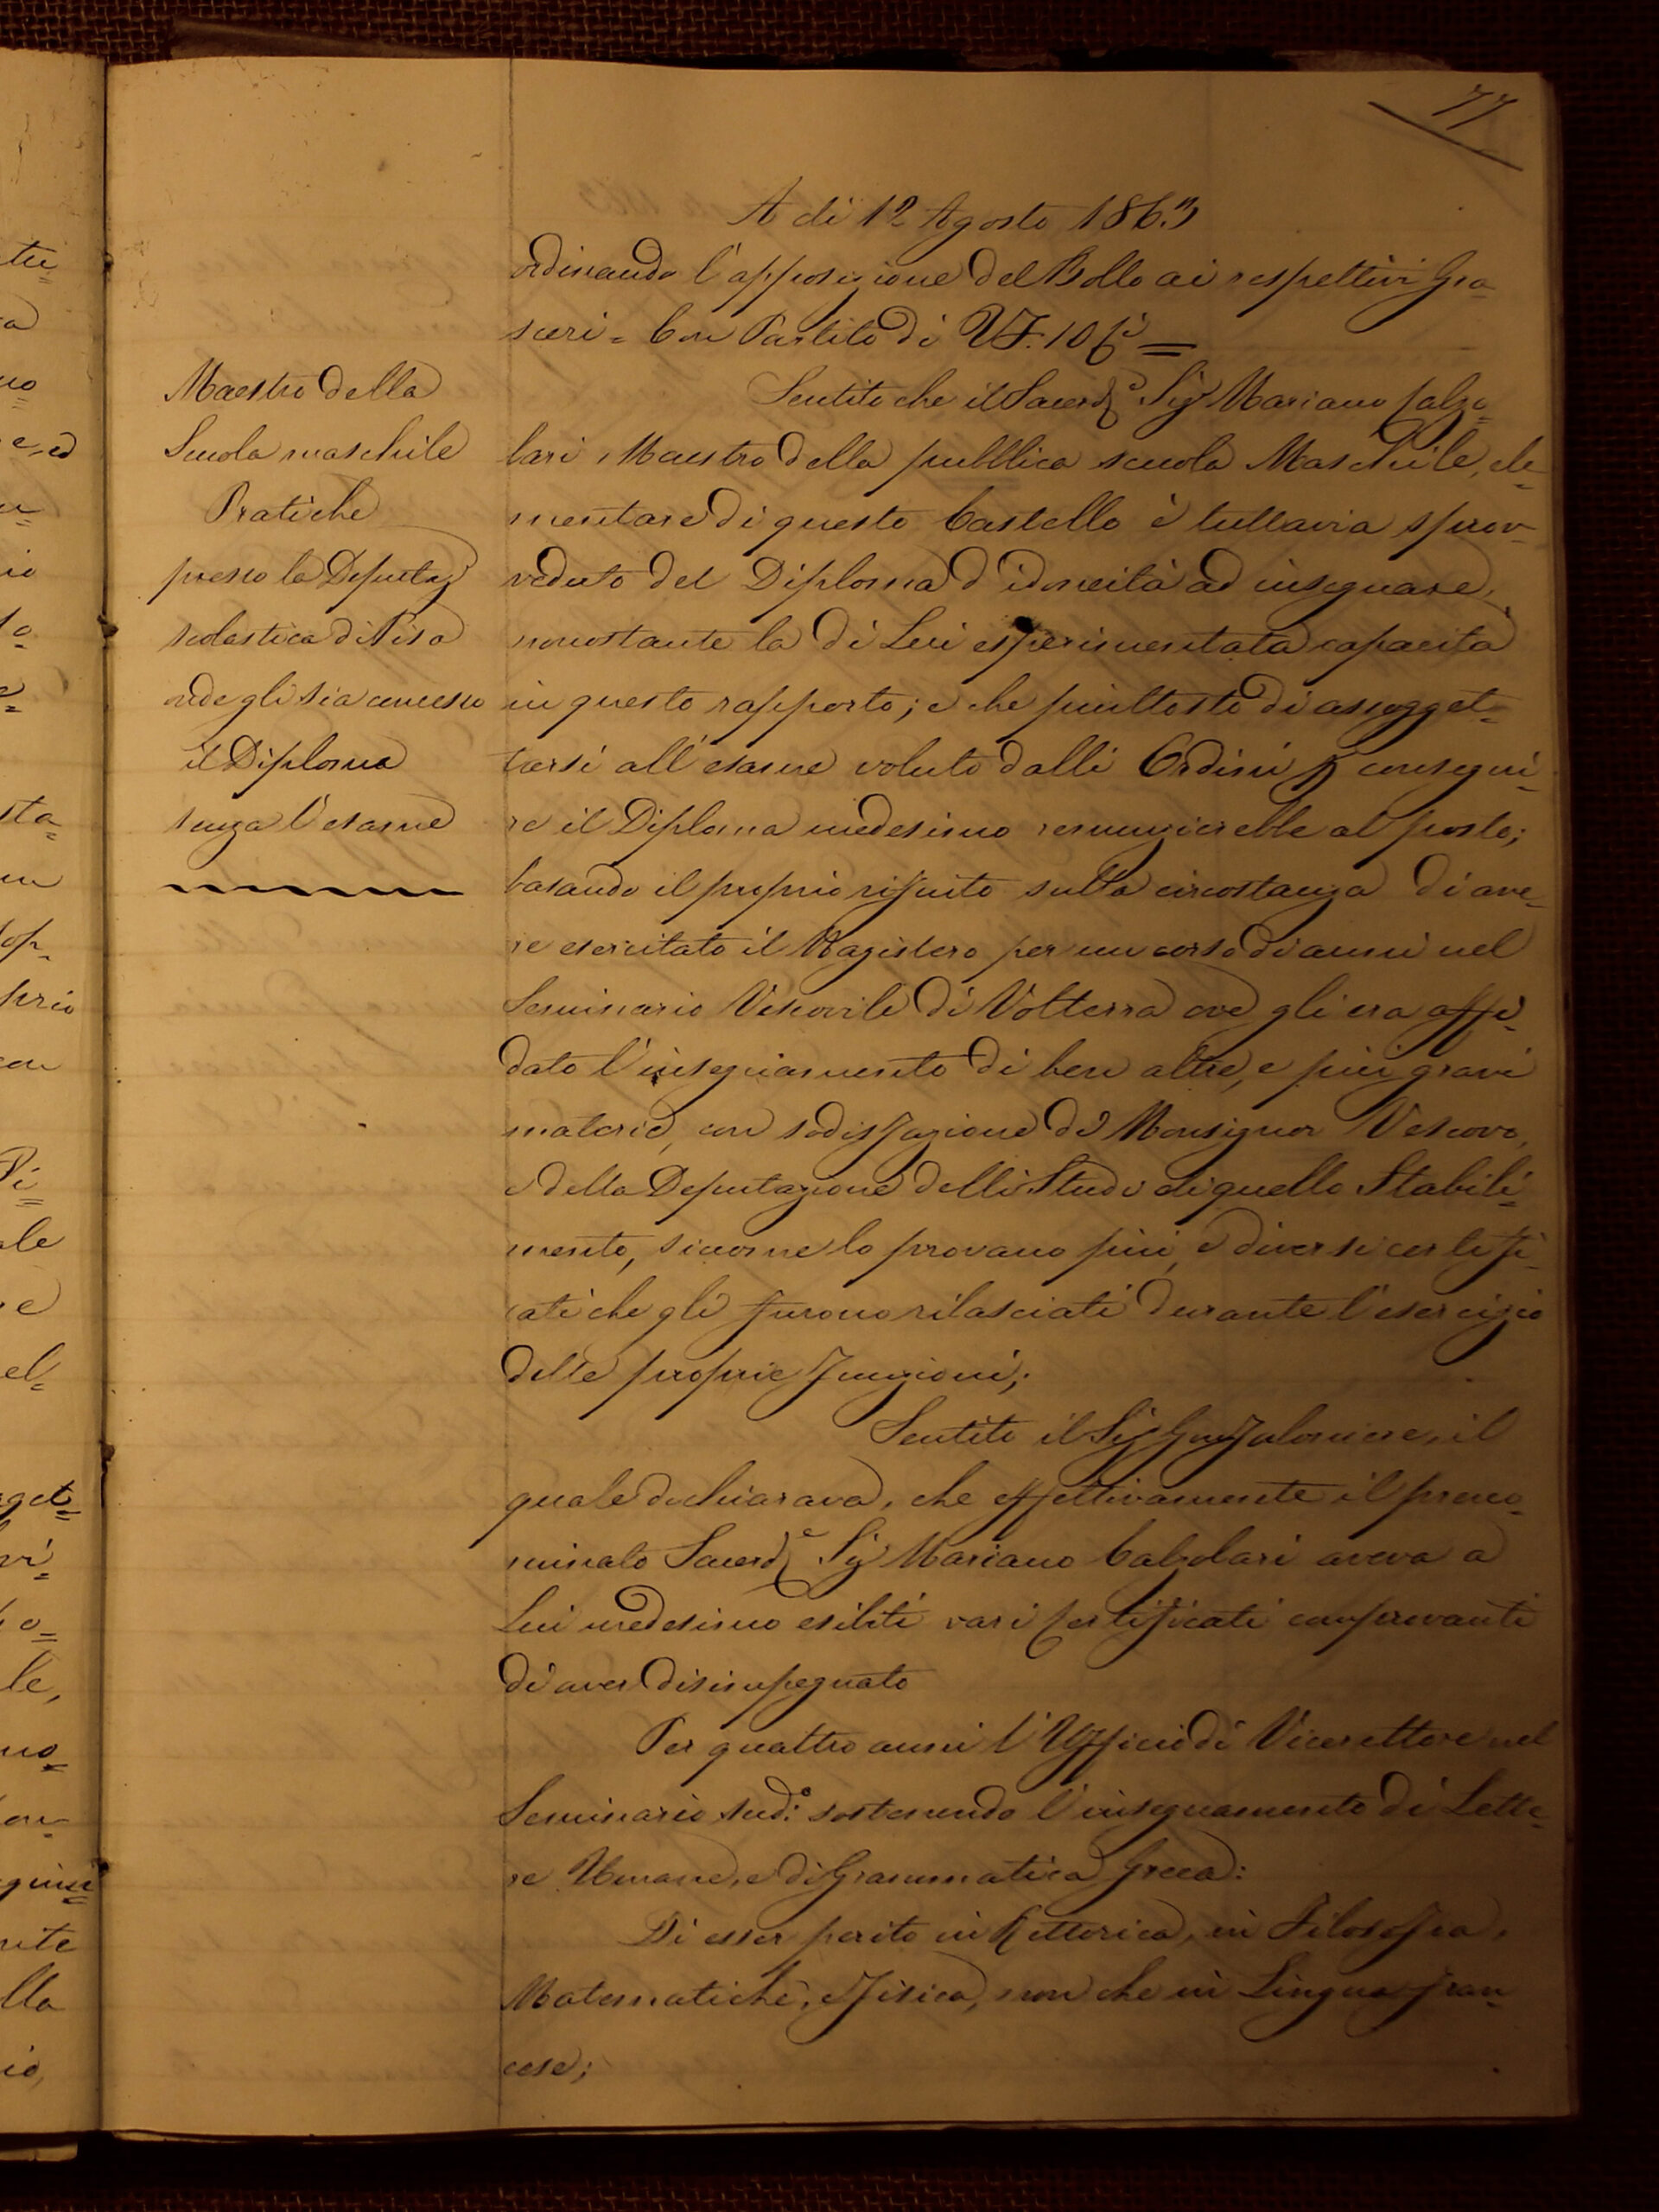 77
A dì 12 Agosto 1863
ordinando l'apposizione del Bollo ai respettivi Gra-
sceri = Con Partito di VF. 10 fi =
Maestro della
Scuola maschile
Pratiche
presso la Deputaz
scolastica di Pisa
onde gli sia concesso
il Diploma
senza l'esame
Sentito che il Sacerde Sig Mariano Calzo-
lari, Maestro della pubblica scuola Maschile, ele-
mentare di questo Castello è tuttavia sprov-
veduto del Diploma d'idoneità ad insegnare,
nonostante la di Lui esperimentata capacità
in questo rapporto; e che piuttosto di assogget-
tarsi all'esame voluto dalli Ordini p consegui-
re il Diploma medesimo renunzierebbe al posto;
basando il proprio rifiuto sulla circostanza di ave-
re esercitato il Magistero per un corso di anni nel
Seminario Vescovile di Volterra ove gli era affi-
dato l'insegnamento di ben altre, e più gravi
materie, con sodisfazione di Monsignor Vescovo,
e della Deputazione delli Studi di quello Stabili-
mento, siccome lo provano più, e diversi certifi-
cati che gli furono rilasciati durante l'esercizio
delle proprie funzioni;
Sentito il Sig Gonfaloniere, il
quale dichiarava, che effettivamente il preno-
minato Sacerde Sig Mariano Calzolari aveva a
Lui medesimo esibiti vari Certificati comprovanti
di aver disimpegnato
Per quattro anni l'Ufficio di Vicerettore nel
Seminario sud:o sostenendo l'insegnamento di Lette-
re Umane, e di Grammatica Greca:
Di esser perito in Rettorica, in Filosofia,
Matematiche, e Fisica, non che in Lingua fran-
cese;